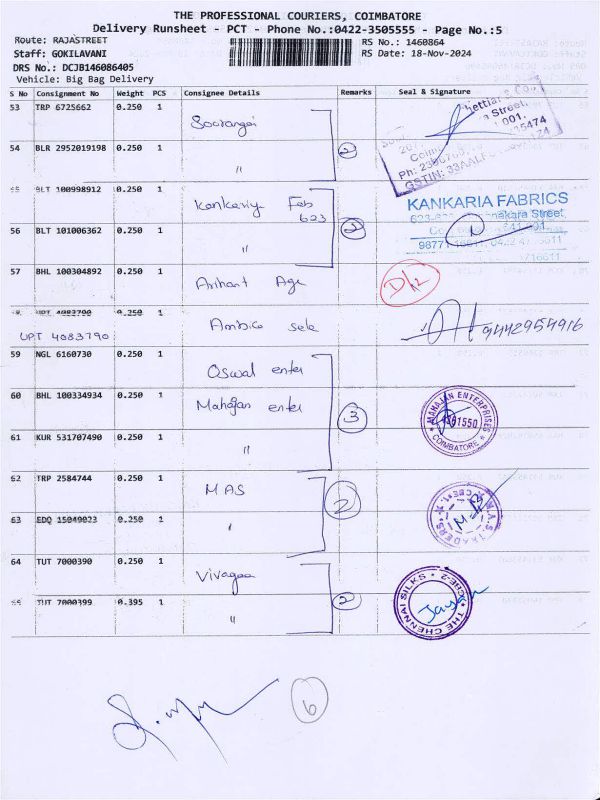 THE PROFESSIONAL COURIERS, COIMBATORE
Delivery Runsheet - PCT - Phone No.:0422-3505555 - Page No.:5
Route: RAJASTREET
RS No.: 1460864
Staff: GOKILAVANI
RS Date: 18-Nov-2024
DRS No.: DCJB146086405
Vehicle: Big Bag Delivery
S No Consignment No Weight PCS Consignee Details Remarks Seal & Signature
53 TRP 6725662 0.250 1
54 BLR 2952019198 0.250 1 " 2
55 BLT 100998912 0.250 1 Kankariya Fab
623
KANKARIA FABRICS
56 BLT 101006362 0.250 1 " 2
57 BHL 100304892 0.250 1 Arihant Age D/12
58 UPT 4083790 0.250 1
UPT 4083790 Ambica sele 9442954916
59 NGL 6160730 0.250 1 Oswal enter
60 BHL 100334934 0.250 1 Mahajan enter 3
MAHAJAN ENTERPRISES
COIMBATORE
61 KUR 531707490 0.250 1 "
62 TRP 2584744 0.250 1 MAS 2
M.A.S. TRADERS
63 EDQ 15049023 0.250 1 "
64 TUT 7000390 0.250 1 Vivagaa
65 TUT 7000399 0.395 1 " 2
THE CHENNAI SILKS * CBE-2
6